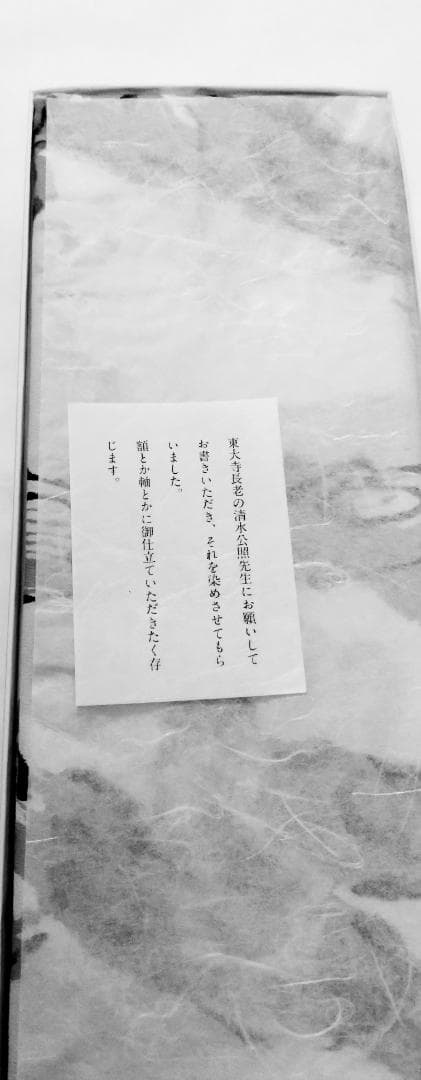 東大寺長老の清水公照先生にお願いして
お書きいただき、それを染めさせてもら
いました。
額とか軸とかに御仕立ていただきたく存
じます。